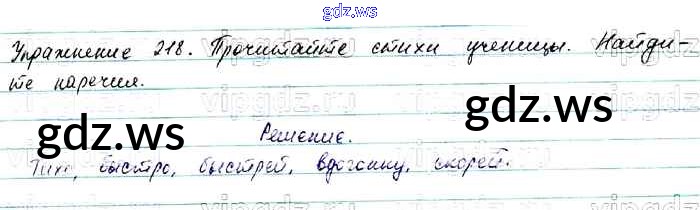 gdz.ws
Упражнение 218. Прочитайте стихи ученицы. Найди-
те наречия.
gdz.ws
gdz.ws
Решение.
Тихо, быстро, быстрей, вдогонку, скорей.